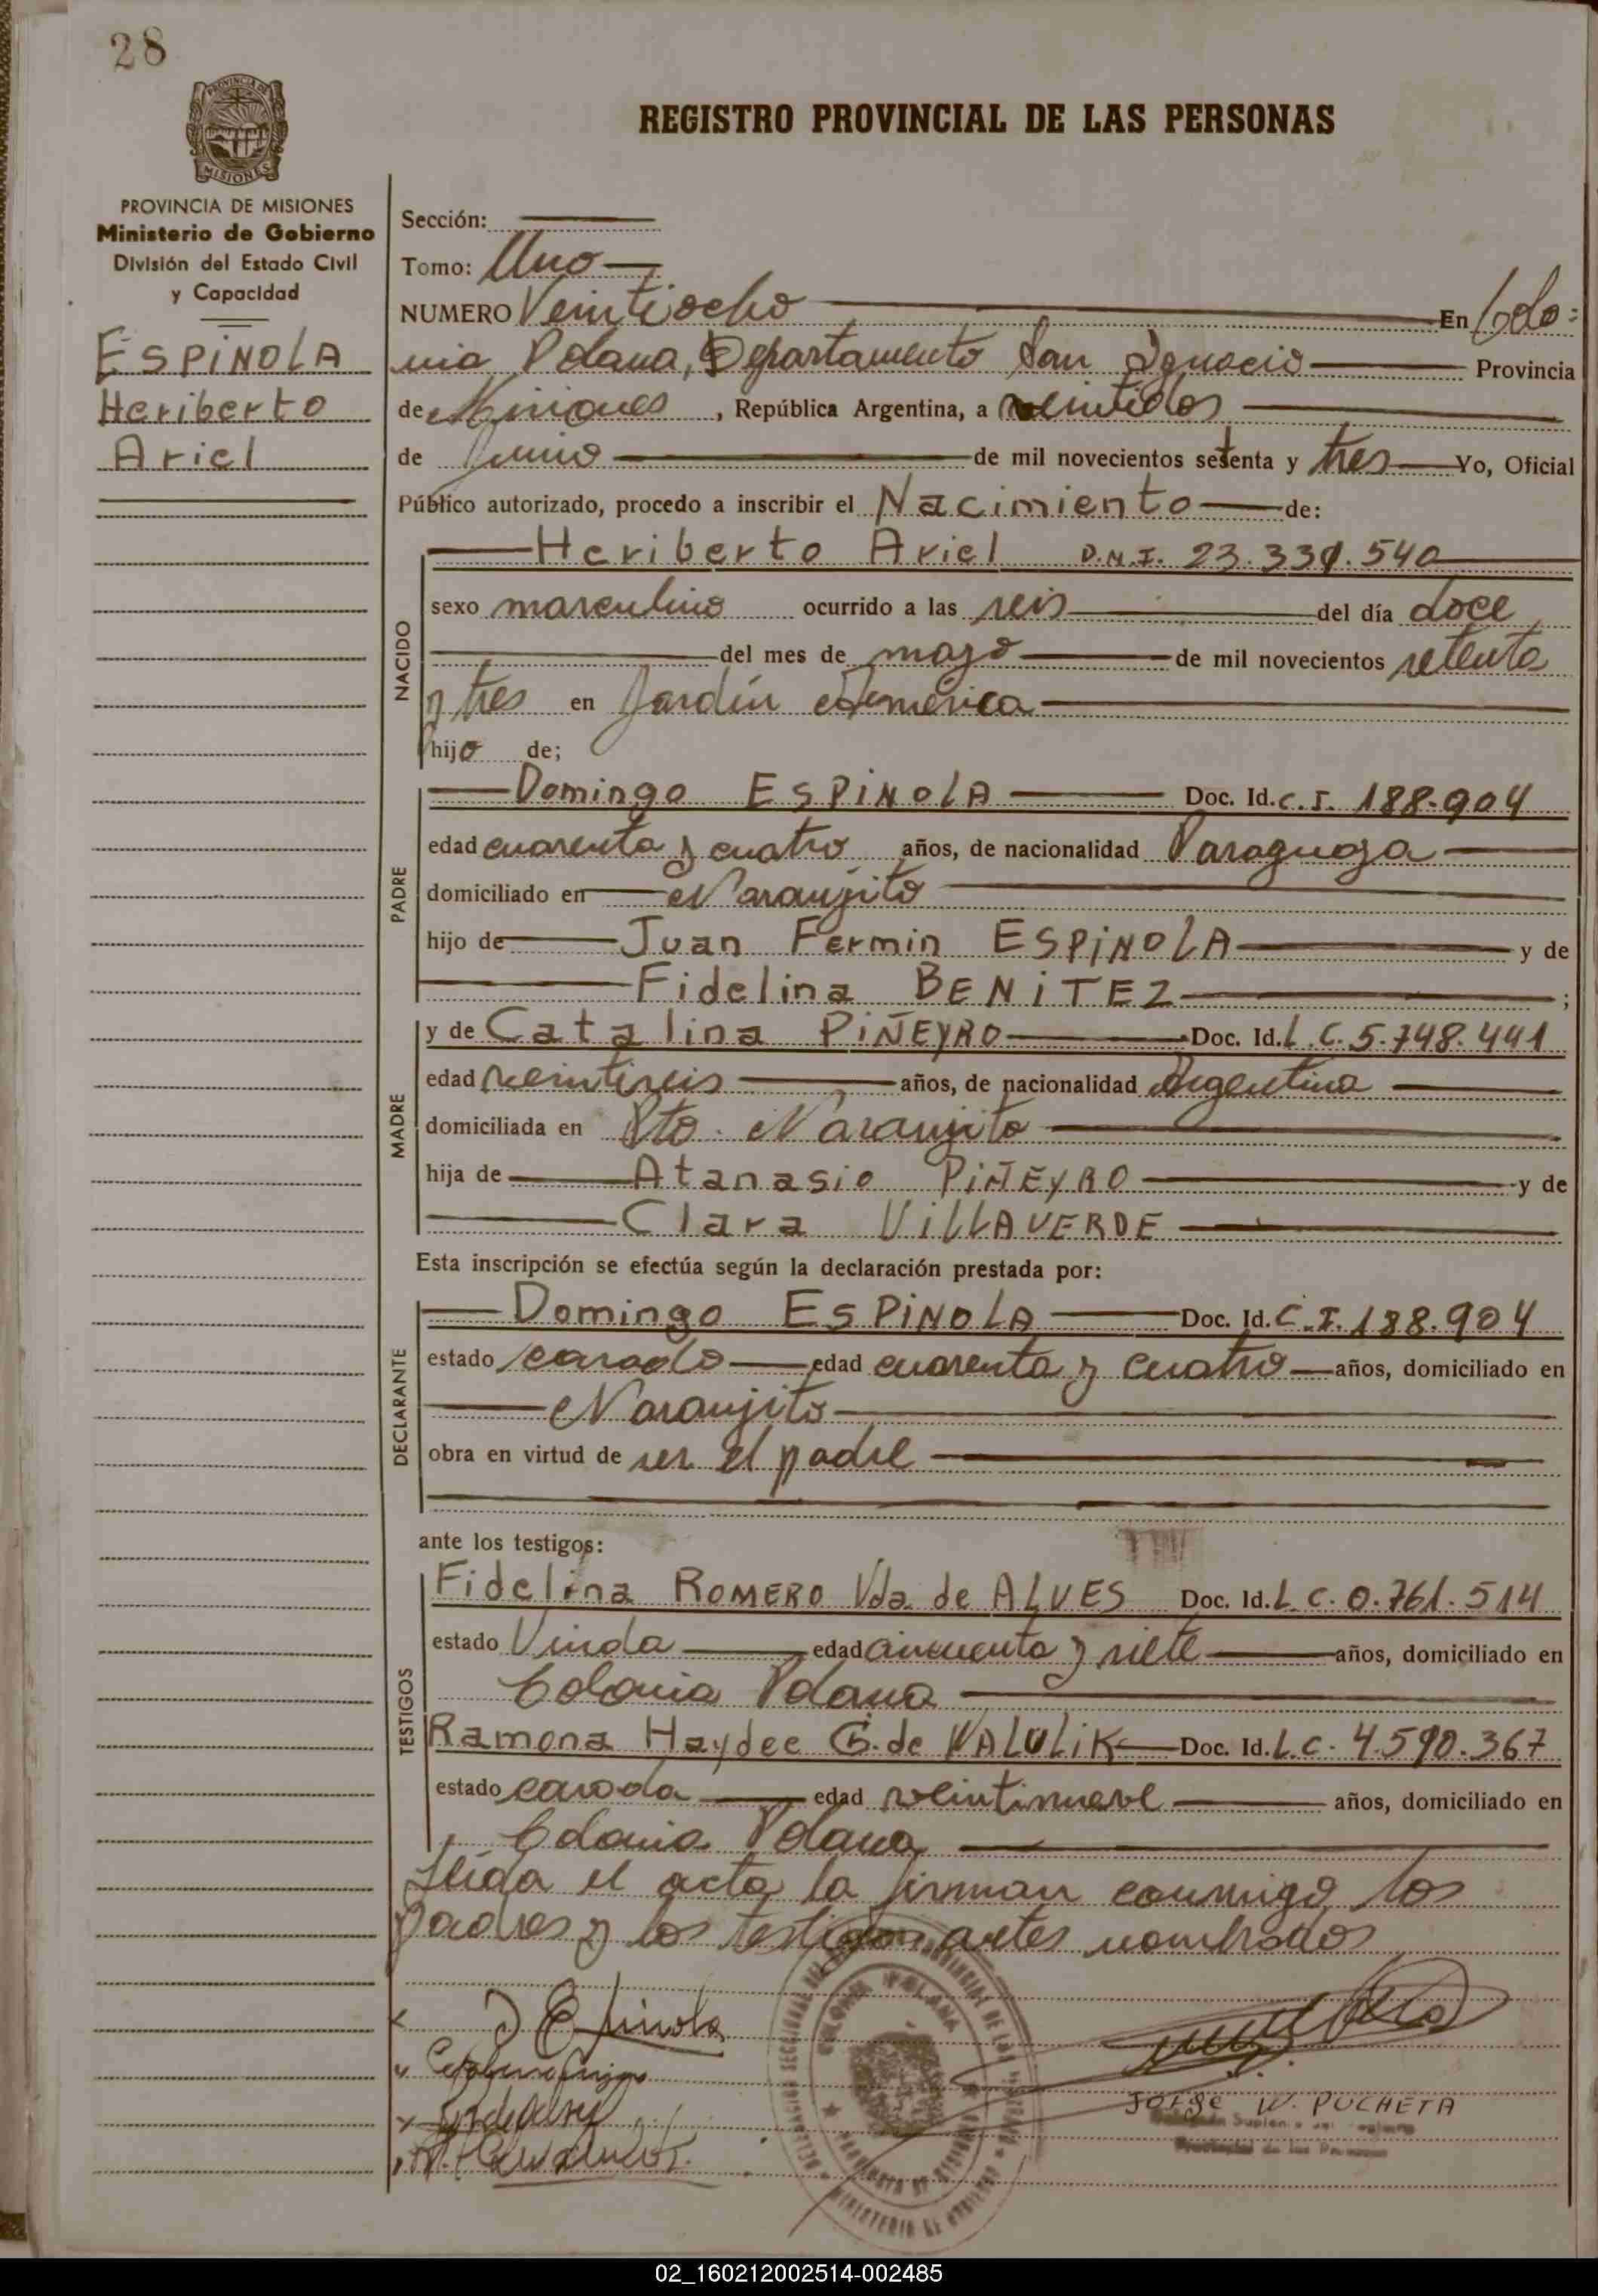 28
PROVINCIA DE
MISIONES
REGISTRO PROVINCIAL DE LAS PERSONAS
PROVINCIA DE MISIONES
Ministerio de Gobierno
División del Estado Civil
y Capacidad
ESPINOLA
Heriberto
Ariel
Sección:
Tomo: Uno
NUMERO Veintiocho En Colo=
nia Polana, Departamento San Ignacio Provincia
de Misiones, República Argentina, a veintidos
de Junio de mil novecientos setenta y tres Yo, Oficial
Público autorizado, procedo a inscribir el Nacimiento de:
NACIDO
Heriberto Ariel D.N.I. 23.331.540
sexo masculino ocurrido a las seis del día doce
del mes de mayo de mil novecientos setenta
y tres en Jardín América
hijo de;
PADRE
Domingo ESPINOLA Doc. Id. C.I. 188.904
edad cuarenta y cuatro años, de nacionalidad Paraguaya
domiciliado en Naranjito
hijo de Juan Fermin ESPINOLA y de
Fidelina BENITEZ;
MADRE
y de Catalina PIÑEYRO Doc. Id. L.C. 5.748.441
edad veintiseis años, de nacionalidad Argentina
domiciliada en Pto. Naranjito
hija de Atanasio PIÑEYRO y de
Clara VILLAVERDE
Esta inscripción se efectúa según la declaración prestada por:
DECLARANTE
Domingo ESPINOLA Doc. Id. C.I. 188.904
estado casado edad cuarenta y cuatro años, domiciliado en
Naranjito
obra en virtud de ser el padre
ante los testigos:
TESTIGOS
Fidelina ROMERO Vda. de ALVES Doc. Id. L.C. 0.761.514
estado Viuda edad cincuenta y siete años, domiciliado en
Colonia Polana
Ramona Haydee G. de WALULIK Doc. Id. L.C. 4.590.367
estado casada edad veintinueve años, domiciliado en
Colonia Polana
Leída el acta, la firman conmigo, los
padres y los testigos antes nombrados
D Espinola
COLONIA POLANA
PROVINCIA DE MISIONES
MINISTERIO DE GOBIERNO
Jorge W. PUCHETA
02_160212002514-002485